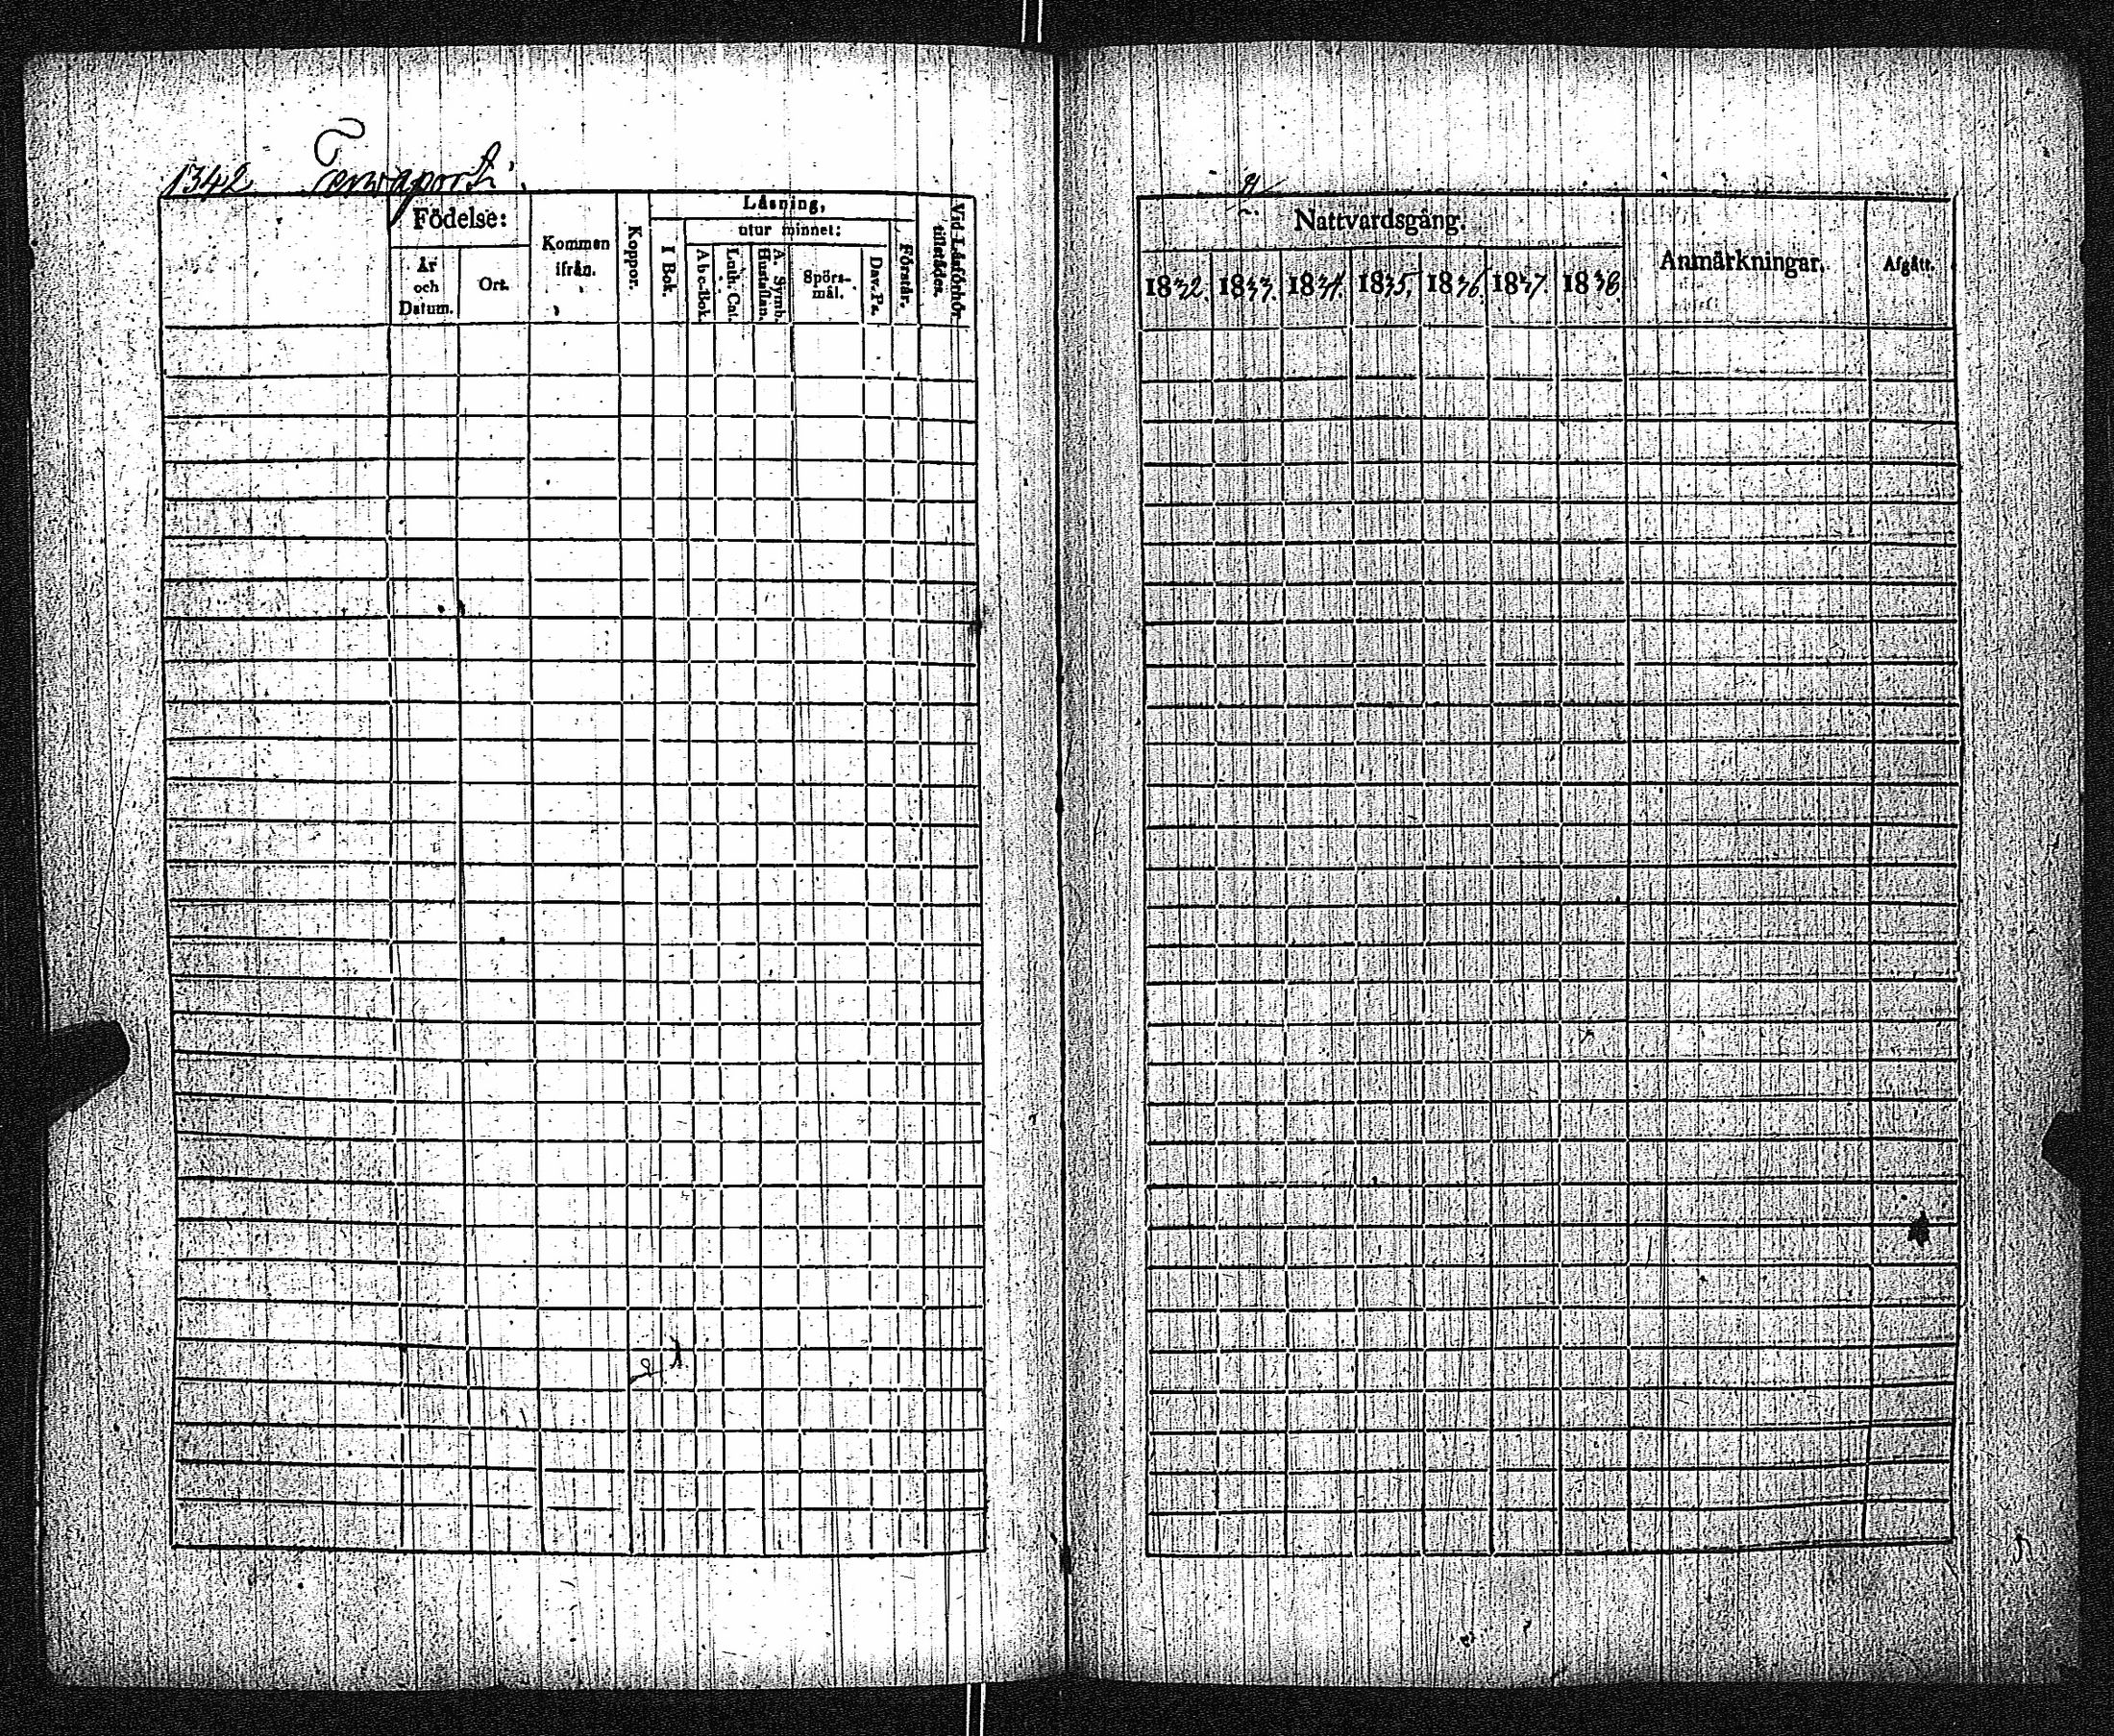 1342 Terwaporti.
Födelse:
År och Datum.
Ort.
Kommen ifrån.
Koppor.
Läsning,
I Bok.
utur minnet:
Abc-Bok.
Luth. Cat.
A. Symb. Hustaflan.
Spörsmål.
Dav. Ps.
Förstår.
Vid Läsförhör tillstädes.
Nattvardsgång.
1832. 1833. 1834. 1835. 1836. 1837. 1838.
Anmärkningar.
Afgått.